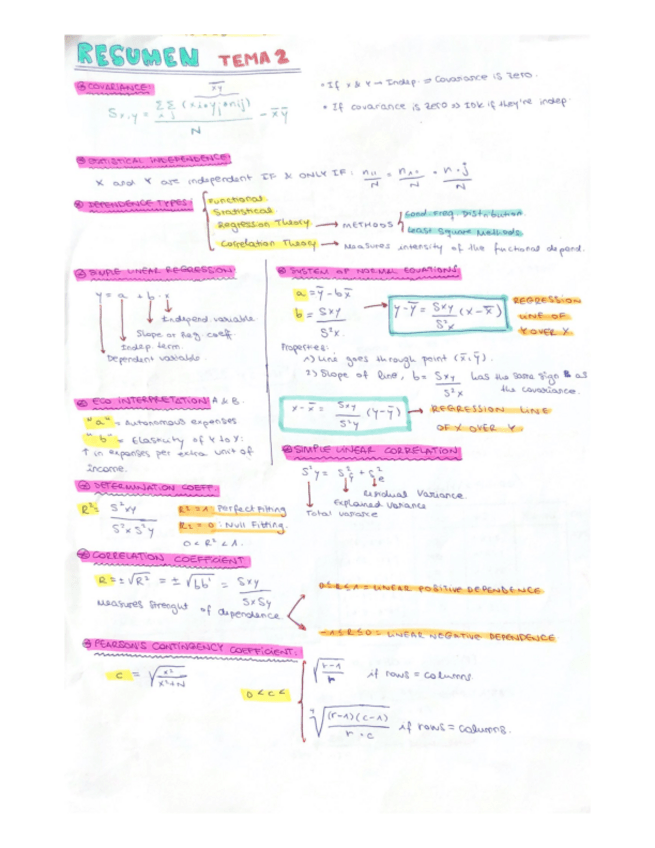 RESUMEN TEMA 2
COVARIANCE:
Sx,y = ΣΣ (xi·yj·nij) / N − x̄ȳ
xy
• If X & Y → Indep. ⇒ Covariance is zero.
• If covariance is zero ⇒ IDK if they're indep.
STATISTICAL INDEPENDENCE:
X and Y are independent IF & ONLY IF: n11/N = n1•/N · n•j/N
DEPENDENCE TYPES:
Functional
Statistical
Regression Theory → METHODS
Cond. Freq. Distribution
Least Square Methods
Correlation Theory → Measures intensity of the fuctional depend.
SIMPLE LINEAR REGRESSION
y = a + b · x
Independ. variable
Slope or Reg. coeff.
Indep. term
Dependent variable
SYSTEM OF NORMAL EQUATIONS
a = ȳ − bx̄
b = Sxy / S²x
y − ȳ = Sxy / S²x (x − x̄)
REGRESSION
LINE OF
Y OVER X
Properties:
1) Line goes through point (x̄, ȳ).
2) Slope of line, b = Sxy / S²x has the same sign as
the covariance.
x − x̄ = Sxy / S²y (y − ȳ) → REGRESSION LINE
OF X OVER Y
ECO INTERPRETATION: A & B.
"a" = Autonomous expenses
"b" = Elasticity of Y to X:
↑ in expenses per extra unit of
income.
SIMPLE LINEAR CORRELATION
S²y = S²ŷ + S²e
Residual Variance.
Explained Variance
Total variance
DETERMINATION COEFF.
R² = S²xy / S²x S²y
R² = 1: Perfect Fitting
R² = 0: Null Fitting.
0 < R² < 1.
CORRELATION COEFFICIENT
R = ± √R² = ± √bb' = Sxy / SxSy
Measures strenght of dependence
0 ≤ R ≤ 1 = LINEAR POSITIVE DEPENDENCE
−1 ≤ R ≤ 0 = LINEAR NEGATIVE DEPENDENCE
PEARSON'S CONTINGENCY COEFFICIENT:
C = √(x² / x²+N)
0 < C <
√(r−1 / r) if rows = columns
⁴√((r−1)(c−1) / r·c) if rows = columns.